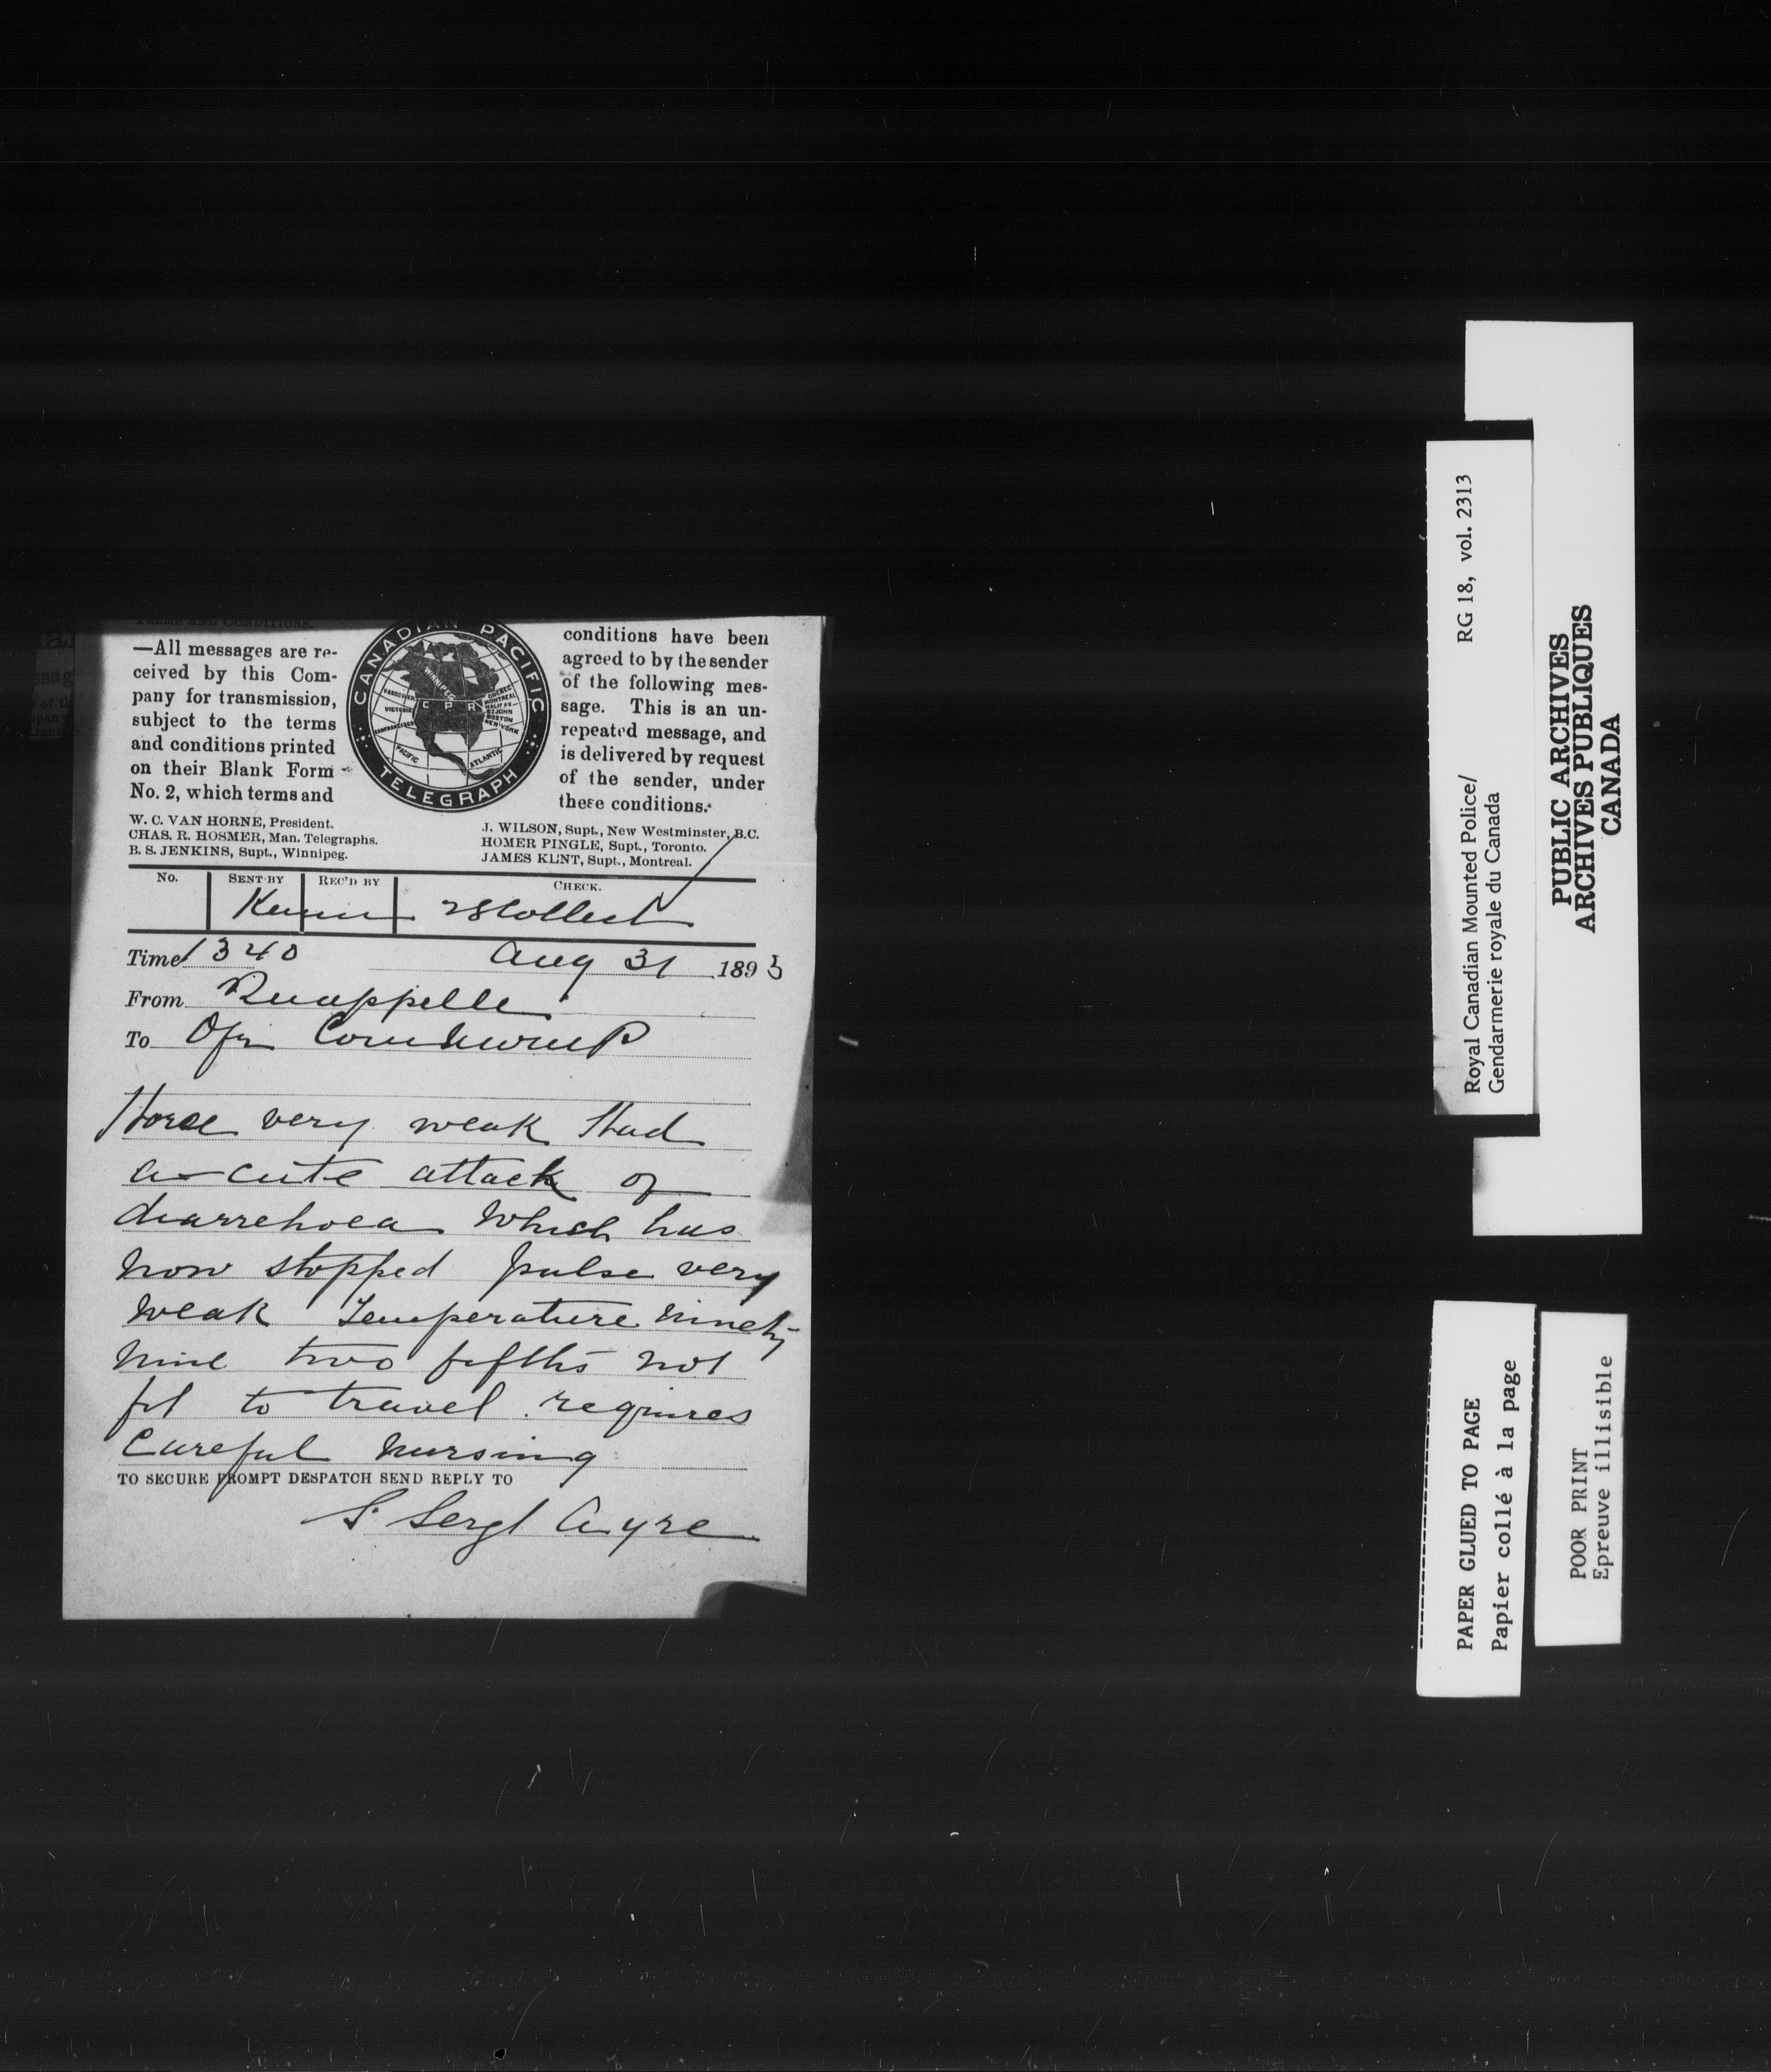 TERMS AND CONDITIONS.
—All messages are re-
ceived by this Com-
pany for transmission,
subject to the terms
and conditions printed
on their Blank Form
No. 2, which terms and
CANADIAN PACIFIC
TELEGRAPH
WINNIPEG
VANCOUVER
VICTORIA
SANFRANCISCO
C P R
QUEBEC
MONTREAL
HALIFAX
ST JOHN
BOSTON
NEW YORK
PACIFIC
ATLANTIC
conditions have been
agreed to by the sender
of the following mes-
sage. This is an un-
repeated message, and
is delivered by request
of the sender, under
these conditions.
W. C. VAN HORNE, President.
CHAS. R. HOSMER, Man. Telegraphs.
B. S. JENKINS, Supt., Winnipeg.
J. WILSON, Supt., New Westminster, B.C.
HOMER PINGLE, Supt., Toronto.
JAMES KENT, Supt., Montreal.
No. SENT BY REC'D BY CHECK.
28 Collect
Time 1340 Aug 31 1893
From Quappelle
To Ofr Com NWMP
Horse very weak Had
a-cute attack of
diarrehoea Which has
now stopped pulse very
weak Temperature ninety
nine two fifths not
fit to travel requires
Careful nursing
TO SECURE PROMPT DESPATCH SEND REPLY TO
S. Sergt Ayre
Royal Canadian Mounted Police/ RG 18, vol. 2313
Gendarmerie royale du Canada
PUBLIC ARCHIVES
ARCHIVES PUBLIQUES
CANADA
PAPER GLUED TO PAGE
Papier collé à la page
POOR PRINT
Epreuve illisible